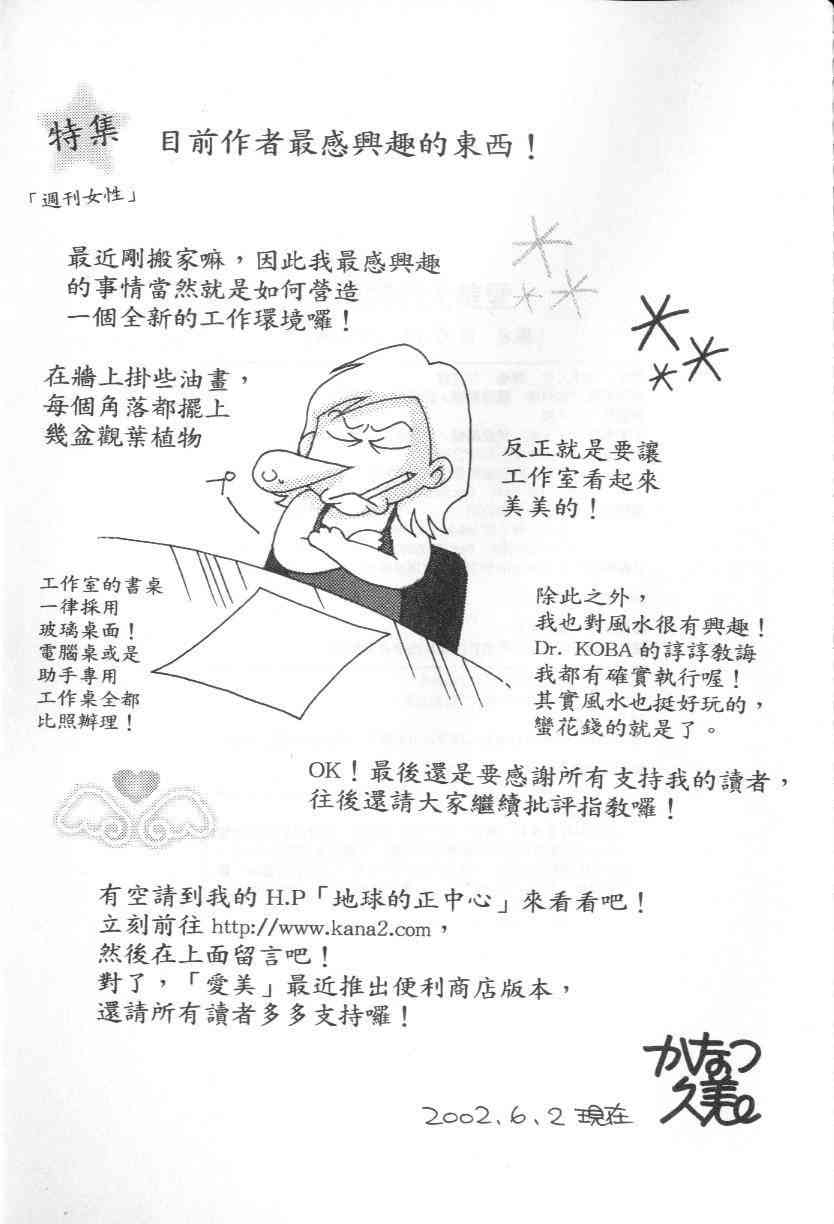 特集
目前作者最感興趣的東西！
「週刊女性」
最近剛搬家嘛，因此我最感興趣
的事情當然就是如何營造
一個全新的工作環境囉！
在牆上掛些油畫，
每個角落都擺上
幾盆觀葉植物
反正就是要讓
工作室看起來
美美的！
工作室的書桌
一律採用
玻璃桌面！
電腦桌或是
助手專用
工作桌全都
比照辦理！
除此之外，
我也對風水很有興趣！
Dr. KOBA的諄諄教誨
我都有確實執行喔！
其實風水也挺好玩的，
蠻花錢的就是了。
OK！最後還是要感謝所有支持我的讀者，
往後還請大家繼續批評指教囉！
有空請到我的 H.P「地球的正中心」來看看吧！
立刻前往 http://www.kana2.com，
然後在上面留言吧！
對了，「愛美」最近推出便利商店版本，
還請所有讀者多多支持囉！
かなつ
久美
2002.6.2 現在